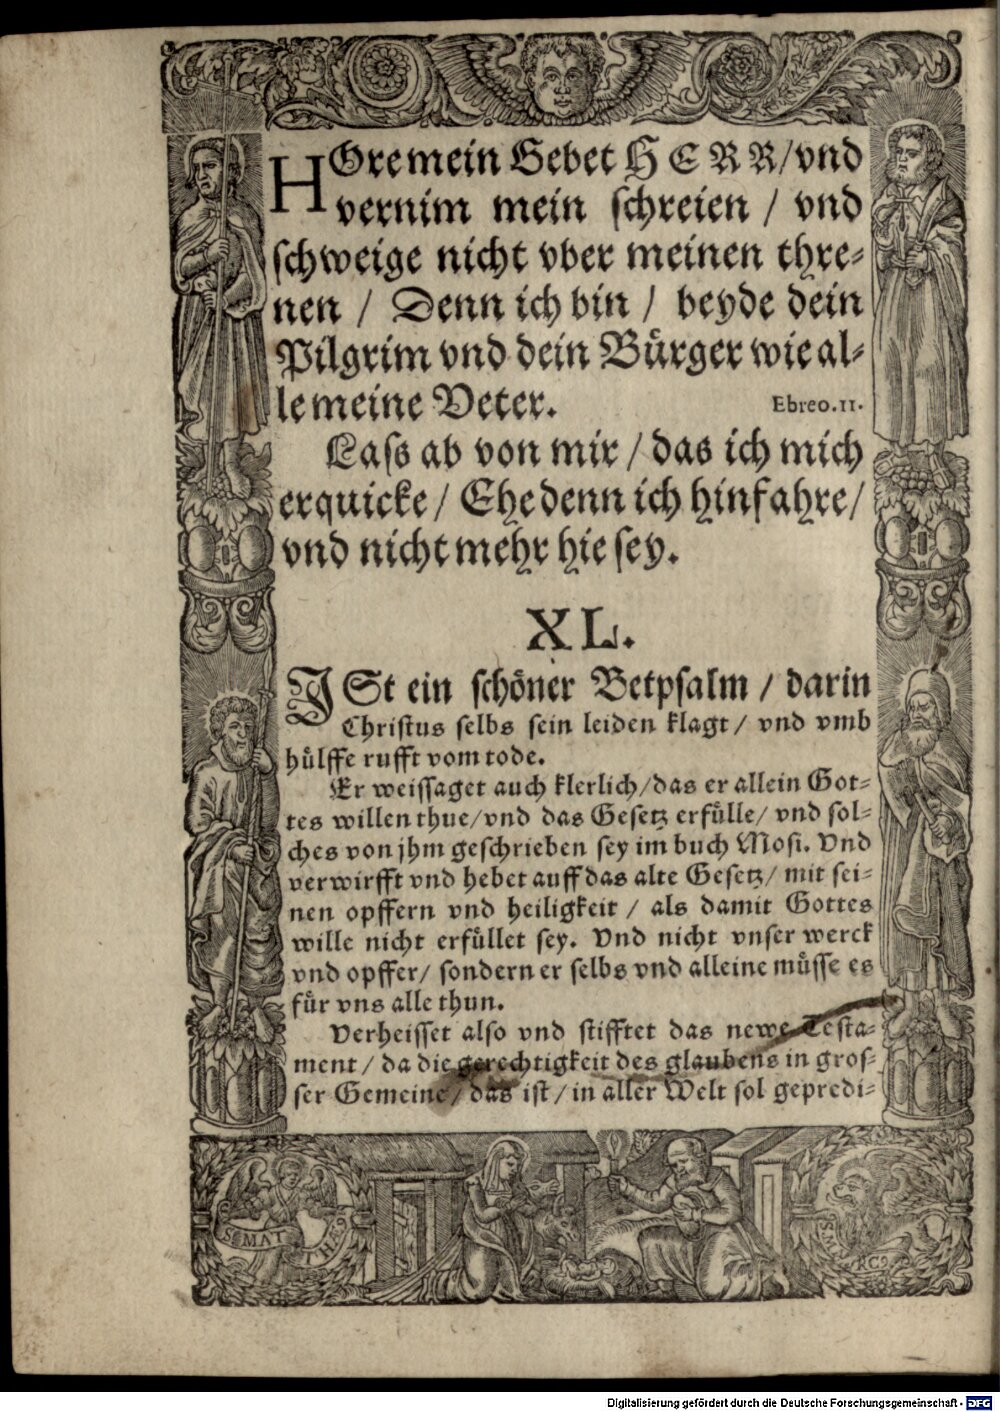 HOre mein Gebet HERR/vnd
vernim mein schreien / vnd
schweige nicht vber meinen thre-
nen / Denn ich bin / beyde dein
Pilgrim vnd dein Bürger wie al-
le meine Veter. Ebreo.11.
Lass ab von mir / das ich mich
erquicke / Ehe denn ich hinfahre/
vnd nicht mehr hie sey.
XL.
ISt ein schöner Betpsalm / darin
Christus selbs sein leiden klagt / vnd vmb
hülffe rufft vom tode.
Er weissaget auch klerlich/das er allein Got-
tes willen thue/vnd das Gesetz erfülle/ vnd sol-
ches von jhm geschrieben sey im buch Mosi. Vnd
verwirfft vnd hebet auff das alte Gesetz/ mit sei-
nen opffern vnd heiligkeit / als damit Gottes
wille nicht erfüllet sey. Vnd nicht vnser werck
vnd opffer/ sondern er selbs vnd alleine müsse es
für vns alle thun.
Verheisset also vnd stifftet das newe Testa-
ment / da die gerechtigkeit des glaubens in gros-
ser Gemeine/ das ist / in aller Welt sol gepredi-
S. MATTHE9
S. MARC9
Digitalisierung gefördert durch die Deutsche Forschungsgemeinschaft - DFG